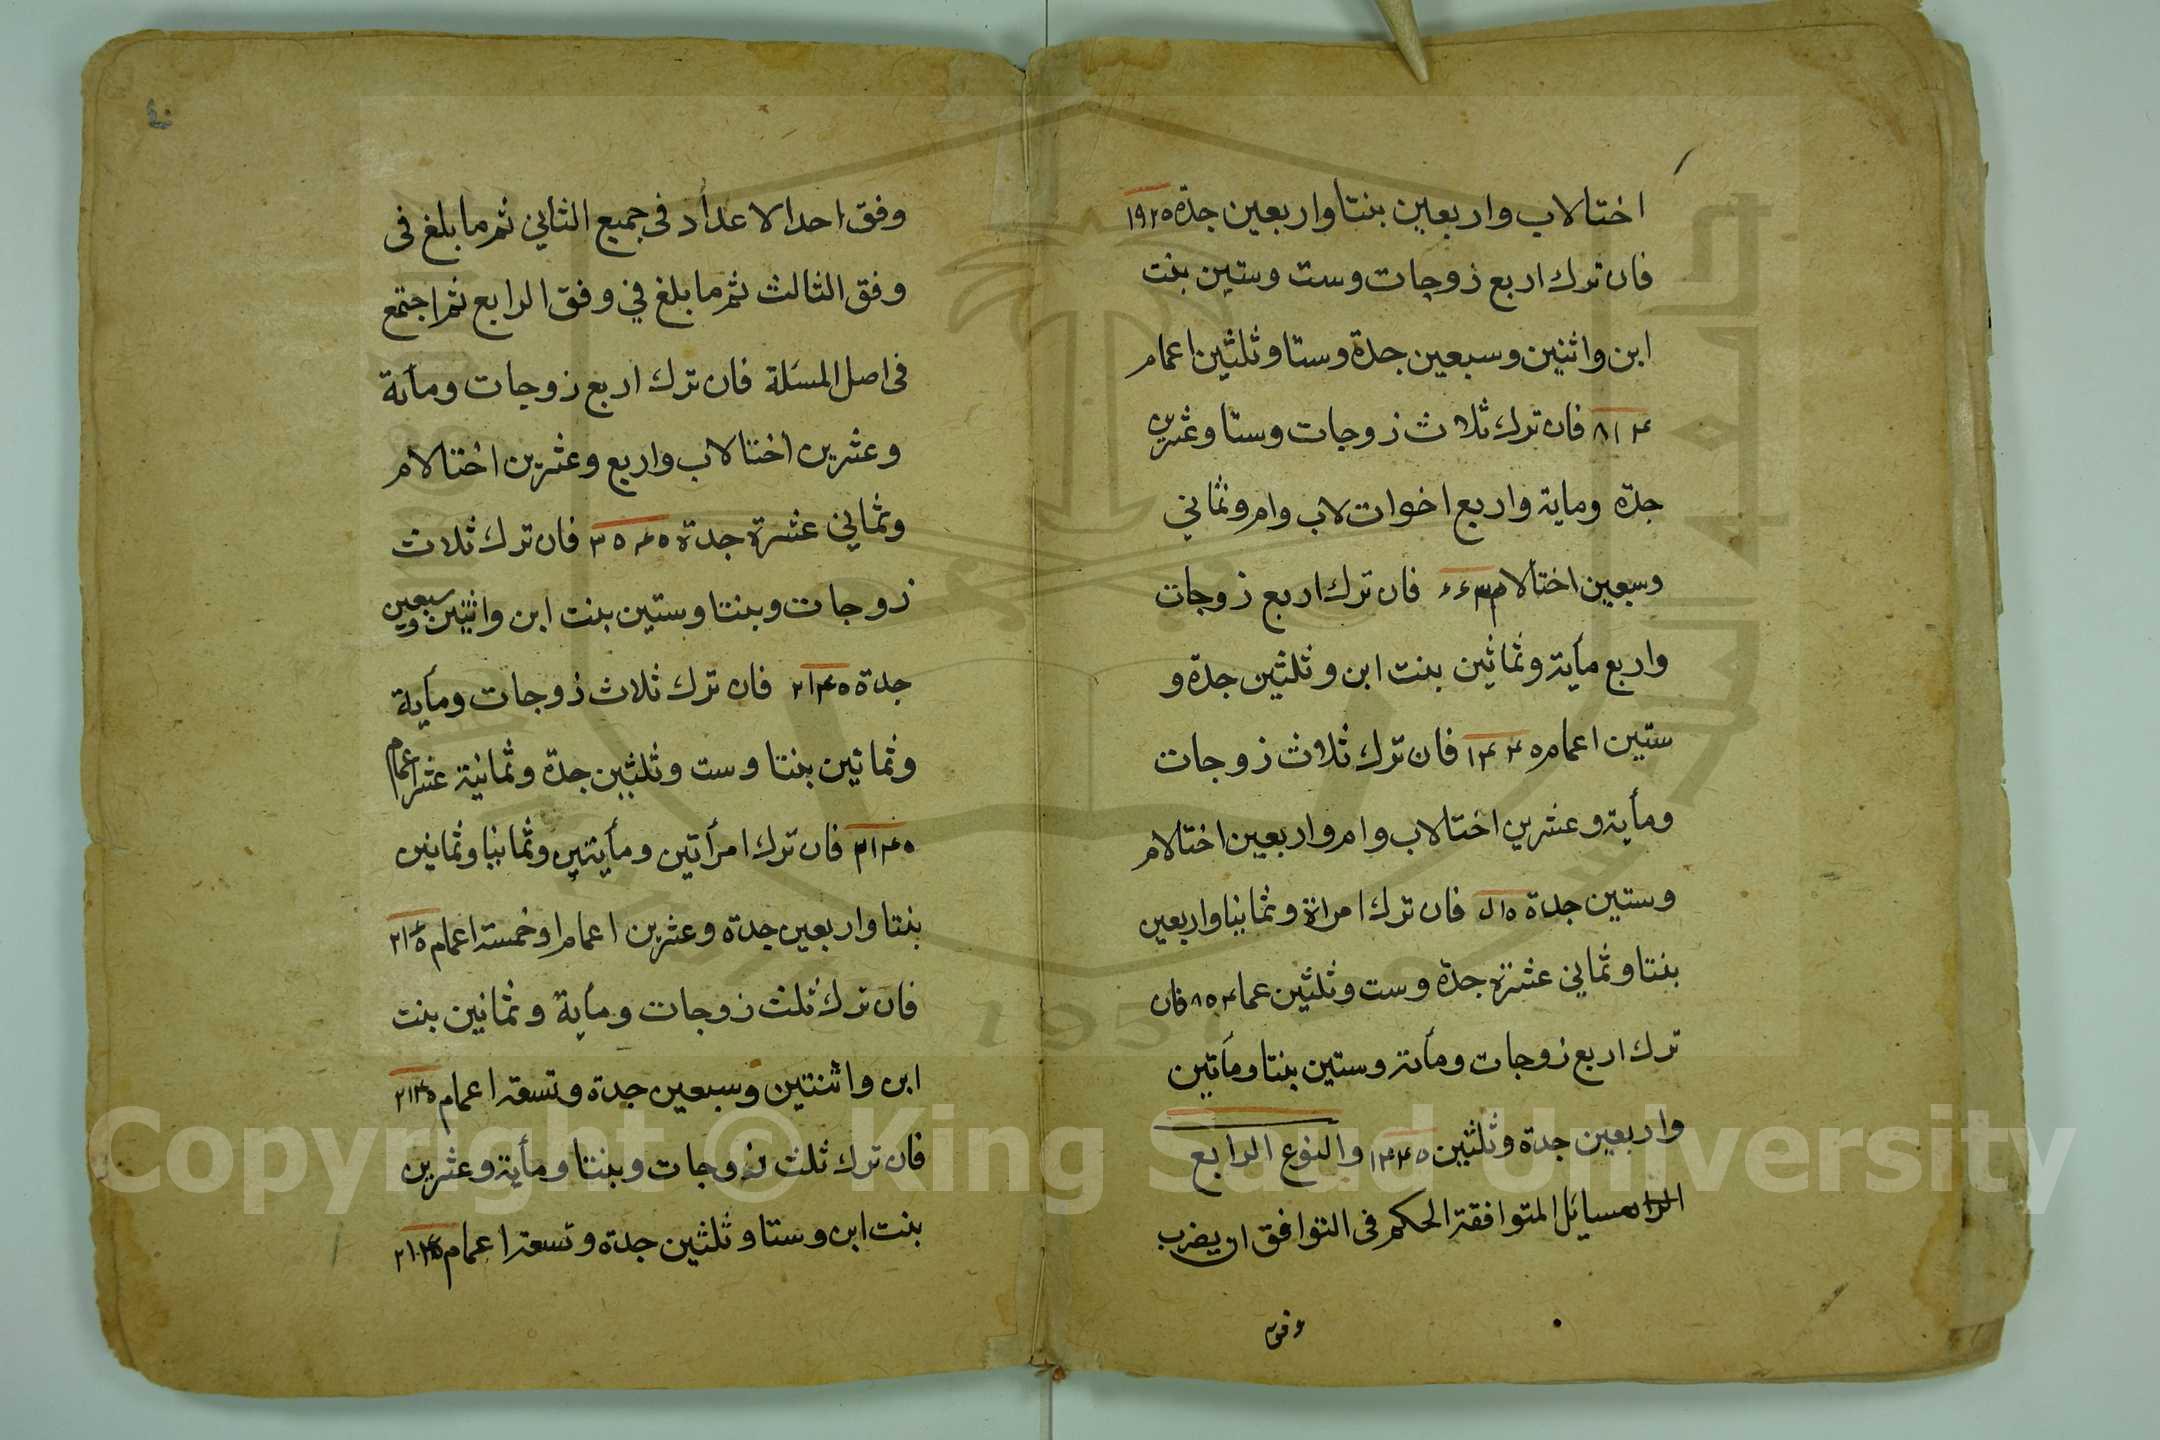 اختا لاب واربعين بنتا واربعين جدة ١٩٢٥
فان ترك اربع زوجات وست وستين بنت
ابن واثنين وسبعين جدة وستا وثلثين اعمام
فان ترك ثلاث زوجات وستا وعشرين
جدة وماية واربع اخوات لاب وام وثماني
وسبعين اختا لام فان ترك اربع زوجات
واربع مأية وثمانين بنت ابن وثلثين جدة و
ستين اعمام فان ترك ثلاث زوجات
ومأية وعشرين اختا لاب وام واربعين اختا لام
وستين جدة فان ترك امراة وثمانيا واربعين
بنتا وثماني عشرة جدة وست وثلثين عما فان
ترك اربع زوجات ومأىة وستين بنتا ومأتين
واربعين جدة وثلثين والنوع الرابع
مسايل المتوافقة الحكم في التوافق ان يضرب
وفق
وفق احد الاعداد في جميع الثاني ثم ما بلغ في
وفق الثالث ثم ما بلغ في وفق الرابع ثم اجتمع
في اصل المسئلة فان ترك اربع زوجات ومأىة
وعشرين اختا لاب واربع وعشرين اختا لام
وثماني عشرة جدة فان ترك ثلاث
زوجات وبنتا وستين بنت ابن واثنين وسبعين
جدة فان ترك ثلاث زوجات ومأية
وثمانين بنتا وست وثلثين جدة وثمانية عشر اعمام
فان ترك امرأتين ومأيتين وثمانيا وثمانين
بنتا واربعين جدة وعشرين اعماما وخمسة اعمام
فان ترك ثلث زوجات ومأية وثمانين بنت
ابن واثنتين وسبعين جدة وتسعة اعمام
فان ترك ثلث زوجات وبنتا ومأية وعشرين
بنت ابن وستا وثلثين جدة وتسعة اعمام
Copyright © King Saud University
1957